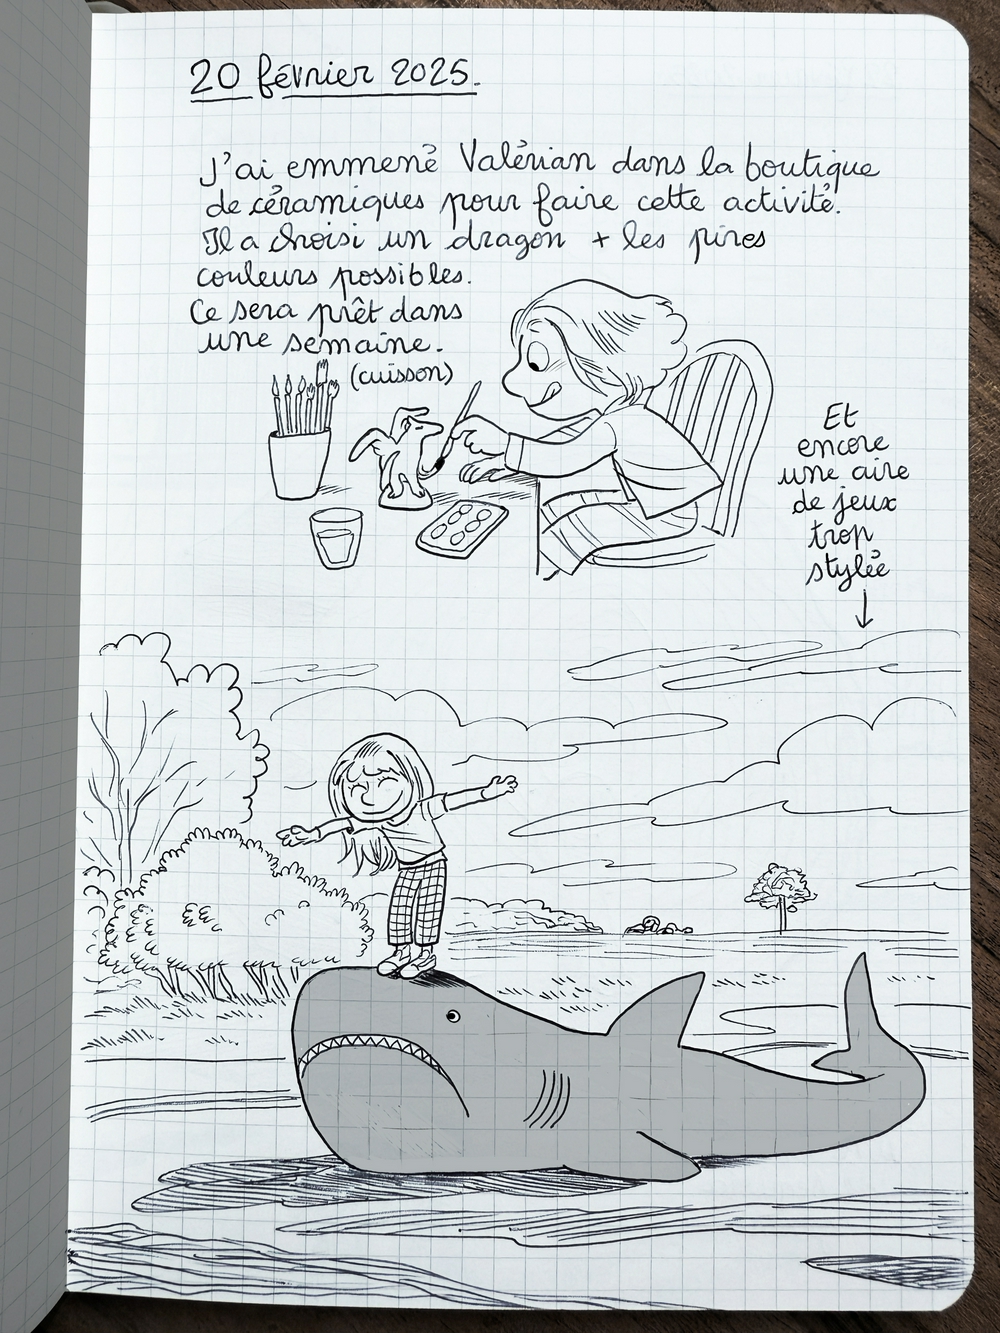 20 février 2025.
J'ai emmené Valérian dans la boutique
de céramiques pour faire cette activité.
Il a choisi un dragon + les pires
couleurs possibles.
Ce sera prêt dans
une semaine.
(cuisson)
Et
encore
une aire
de jeux
trop
stylée